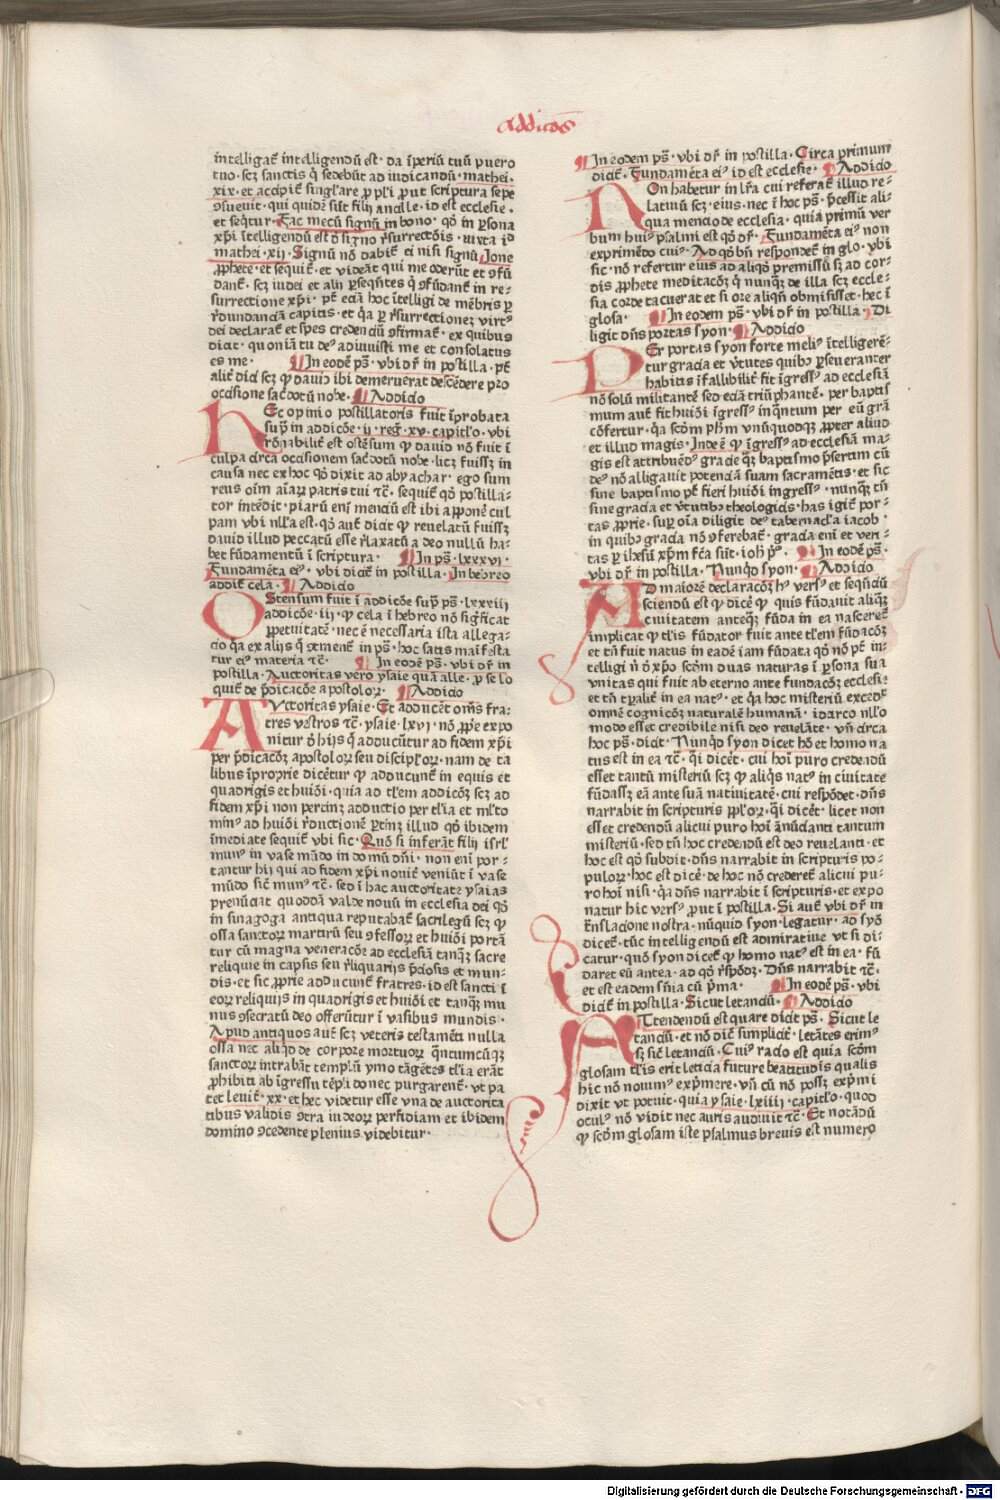 Addicōes
intelligat̄ intelligendū est · da īperiū tuū puero
tuo · scꝫ sanctis q̄ sedebūt ad iudicandū · mathei ·
xix · et accipit̄ singl'are ꝓ pl'i ꝓut scriptura sepe
ꝯsueuit · qui quidē sūt filij ancille · id est ecclesie ·
et seqͥtur · Fac mecū signū in bono · qď in ꝑsona
xp̄i ītelligendū est d̄ signo r̄surrectōis · iuxta id
mathei · xij · Signū nō dabit̄ ei nisi signū Jone
ꝓphete · et sequit̄ · et videāt qui me oderūt et ꝯfū
dant̄ · scꝫ iudei et alij ꝑseqn̄tes q̄ ꝯfūdant̄ in re-
surrectione xp̄i · pt̄ eciā hoc ītelligi de mēbris ꝑ
r̄dundanciā capitis · et qͣa ꝑ r̄surrectioneꝫ virtꝰ
dei declarat̄ et spes credenciū ꝯfirmat̄ · ex quibus
dicit · quoniā tu deꝰ adiuuisti me et consolatus
es me · ¶ In eodē ps̄ · vbi dr̄ in postilla · pt̄
alit̄ dici scꝫ ꝙ dauid ibi demeruerat descēdere pro
occisione sac̄dotū nobe · ¶ Addicio
HEc opinio postillatoris fuit īprobata
sup̄ in addicōe · ij · reḡ · xv · capitl'o · vbi
rōnabilit̄ est ostēsum ꝙ dauid nō fuit ī
culpa circa occisionem sac̄dotū nobe · licꝫ fuissꝫ in
causa nec ex hoc qď dixit ad abyachar · ego sum
reus oīm aīaꝝ patris tui ⁊c̄ · sequit̄ qď postilla-
tor intēdit · piarū eni menciū est ibi apponē cul
pam vbi nll'a est · qď aut̄ dicit ꝙ reuelatū fuissꝫ
dauid illud peccatū esse r̄laxatū a deo nullū ha-
bet fūdamentū ī scriptura · ¶ In ps̄ · lxxxvi ·
Fundamēta eiꝰ · vbi dicit̄ in postilla · In hebreo
addit̄ cela · ¶ Addicio
OStensum fuit ī addicōe sup̄ ps̄ · lxxviij
addicōe · iij · ꝙ cela ī hebreo nō significat
ꝑpetuitatē · nec ē necessaria ista allega-
cio qͣa ex alijs q̄ ꝯtinent̄ in ps̄ · hoc satis maīfesta
tur eiꝰ materia ⁊c̄ · ¶ In eodē ps̄ · vbi dr̄ in
postilla · Auctoritas vero ysaie quā alle · ꝓ se lo
quit̄ de p̄dicacōe apostoloꝝ · ¶ Addicio
AVctoritas ysaie · Et adducēt om̄s fra-
tres vestros ⁊c̄ · ysaie · lxvi · nō ꝓpe expo
nitur d̄ hijs q̄ adducūtur ad fidem xp̄i
per p̄dicacōꝫ apostoloꝝ seu discipl'oꝝ · nam de ta
libus īproprie dicētur ꝙ adducunt̄ in equis et
quadrigis et huiōi · quia ad tl'em addicōꝫ scꝫ ad
fidem xp̄i non pertinꝫ adductio per tl'ia et ml'to
minꝰ ad huiōi r̄ductionē ꝑtinꝫ illud qď ibidem
īmediate sequit̄ vbi sic · Quō si inferāt filij isrl'
munꝰ in vase mūdo in domū dn̄i · non eni por-
tantur hij qui ad fidem xp̄i nouit̄ veniūt ī vase
mūdo sic̄ munꝰ ⁊c̄ · sed ī hac auctoritate ysaias
prenūciat quoddā valde nouū in ecclesia dei qď
in sinagoga antiqua reputabat̄ sacrilegū scꝫ ꝙ
ossa sanctoꝝ martirū seu ꝯfessoꝝ et huiōi portā
tur cū magna veneracōe ad ecclesiā tanqͣꝫ sacre
reliquie in capsis seu r̄liquarijs p̄ciosis et mun-
dis · et sic ꝓprie adducunt̄ fratres · id est sancti ī
eoꝝ reliquijs in quadrigis et huiōi et tanqͣꝫ mu
nus ꝯsecratū deo offerūtur ī vasibus mundis ·
Apud antiquos aut̄ scꝫ veteris testamēti nulla
ossa nec aliqͥd de corpore mortuoꝝ qn̄tumcūqꝫ
sanctoꝝ intrabāt templū ymo tāgētes tl'ia erāt
ꝓhibiti ab īgressu tēpli donec purgarent̄ · vt pa
tet leuit̄ · xx · et hec videtur esse vna de auctorita
tibus validis ꝯtra iudeoꝝ perfidiam et ibidem
domino ꝯcedente plenius videbitur ·
¶ In eodem ps̄ · vbi dr̄ in postilla · Circa primum
dicit̄ · Fundamēta eiꝰ id est ecclesie · ¶ Addicio
NOn habetur in lr̄a cui referat̄ illud re-
latiuū scꝫ · eius · nec ī hoc ps̄ · p̄cessit ali-
qua mencio de ecclesia · quia primū ver
bum huiꝰ psalmi est qď dr̄ · Fundamēta eiꝰ non
exprimēdo cuiꝰ · Ad qď bn̄ respondet̄ in glo · vbi
sic · nō refertur eius ad aliqď premissū sꝫ ad cor-
dis ꝓphete meditacōꝫ q̄ nunqͣꝫ de illa scꝫ eccle-
sia corde tacuerat et si ore aliqn̄ obmisisset · hec ī
glosa · ¶ In eodem ps̄ · vbi dr̄ in postilla · Di
ligit dn̄s portas syon · ¶ Addicio
PEr portas syon forte meliꝰ ītelligerē-
tur gracia et v̄tutes quibꝰ ꝑseueranter
habitis īfallibilit̄ fit īgressꝰ ad ecclesiā
nō solū militantē sed eciā triūphantē · per baptis
mum aut̄ fit huiōi īgressꝰ inqn̄tum per eū grā
cōfertur · qͣa scōm phm̄ vnūquodqꝫ ꝓpter aliud
et illud magis · Inde ē ꝙ īgressꝰ ad ecclesiā ma-
gis est attribuēdꝰ gracie qͣꝫ baptismo p̄sertim cū
deꝰ nō alligauit potenciā suam sacramētis · et sic
sine baptismo pt̄ fieri huiōi ingressꝰ · nunqͣꝫ tn̄
sine gracia et v̄tutibꝰ theologicis · has igit̄ por-
tas ꝓprie · suꝑ oīa diligit deꝰ tabernacl'a iacob ·
in quibꝰ gracia nō ꝯferebat̄ · gracia enī et veri-
tas ꝑ ihesū xp̄m fc̄a sūt · ioh̄ pͥo · ¶ In eodē ps̄ ·
vbi dr̄ in postilla · Nunqͥd syon · ¶ Addicio
AD maiorē declaracōꝫ hꝰ versꝰ et seqn̄ciū
sciendū est ꝙ dicē ꝙ quis fūdauit aliqͣꝫ
ciuitatem anteqͣꝫ fūda in ea nasceret̄
implicat ꝙ tl'is fūdator fuit ante tl'em fūdacōꝫ
et tn̄ fuit natus in eadē iam fūdata qď nō pt̄ in-
telligi ni d̄ xp̄o scōm duas naturas ī ꝑsona sua
vnitas qui fuit ab eterno ante fundacōꝫ ecclesie
et tn̄ tꝑalit̄ in ea natꝰ · et qͣa hoc misteriū excedit
omnē cognicōꝫ naturalē humanā · idarco nll'o
modo esset credibile nisi deo reuelāte · vn̄ circa
hoc ps̄ · dicit · Nunqͥd syon dicet hō et homo na
tus est in ea ⁊c̄ · qͥ dicēt · cui hoī puro credendū
esset tantū misteriū scꝫ ꝙ aliqͥs natꝰ in ciuitate
fūdassꝫ eā ante suā natiuitatē · cui respōdet · dn̄s
narrabit in scripturis ppl'oꝝ · qͥ dicēt · licet non
esset credendū alicui puro hoī ānūcianti tantum
misteriū · sed tn̄ hoc credendū est deo reuelanti · et
hoc est qď subdit · dn̄s narrabit in scripturis po-
puloꝝ · hoc est dicē · de hoc nō crederet̄ alicui pu-
ro hoī nisi · qͣa dn̄s narrabit ī scripturis · et expo
natur hic versꝰ ꝓut ī postilla · Si aut̄ vbi dr̄ in
tn̄slacione nostra · nūquid syon · legatur · ad syō
dicet̄ · tūc intelligendū est admiratiue vt si di-
catur · quō syon dicet̄ ꝙ homo natꝰ est in ea · fū
daret eū antea · ad qď r̄spōdꝫ · Dn̄s narrabit ⁊c̄ ·
et est eadem sn̄ia cū p̄ma · ¶ In eodē ps̄ · vbi
dicit̄ in postilla · Sicut letanciū · ¶ Addicio
ATtendendū est quare dicit ps̄ · Sicut le
tanciū · et nō dic̄ simplicit̄ · letātes erimꝰ
sꝫ sic̄ letanciū · Cuiꝰ racio est quia scōm
glosam tl'is erit leticia future beatitudis qualis
hic nō nouimꝰ exp̄mere · vn̄ cū nō possꝫ exp̄mi
dixit vt potuit · quia ysaie · lxiiij · capitl'o · quod
oculꝰ nō vidit nec auris audiuit ⁊c̄ · Et notādū
ꝙ scōm glosam iste psalmus breuis est numero
Digitalisierung gefördert durch die Deutsche Forschungsgemeinschaft - DFG